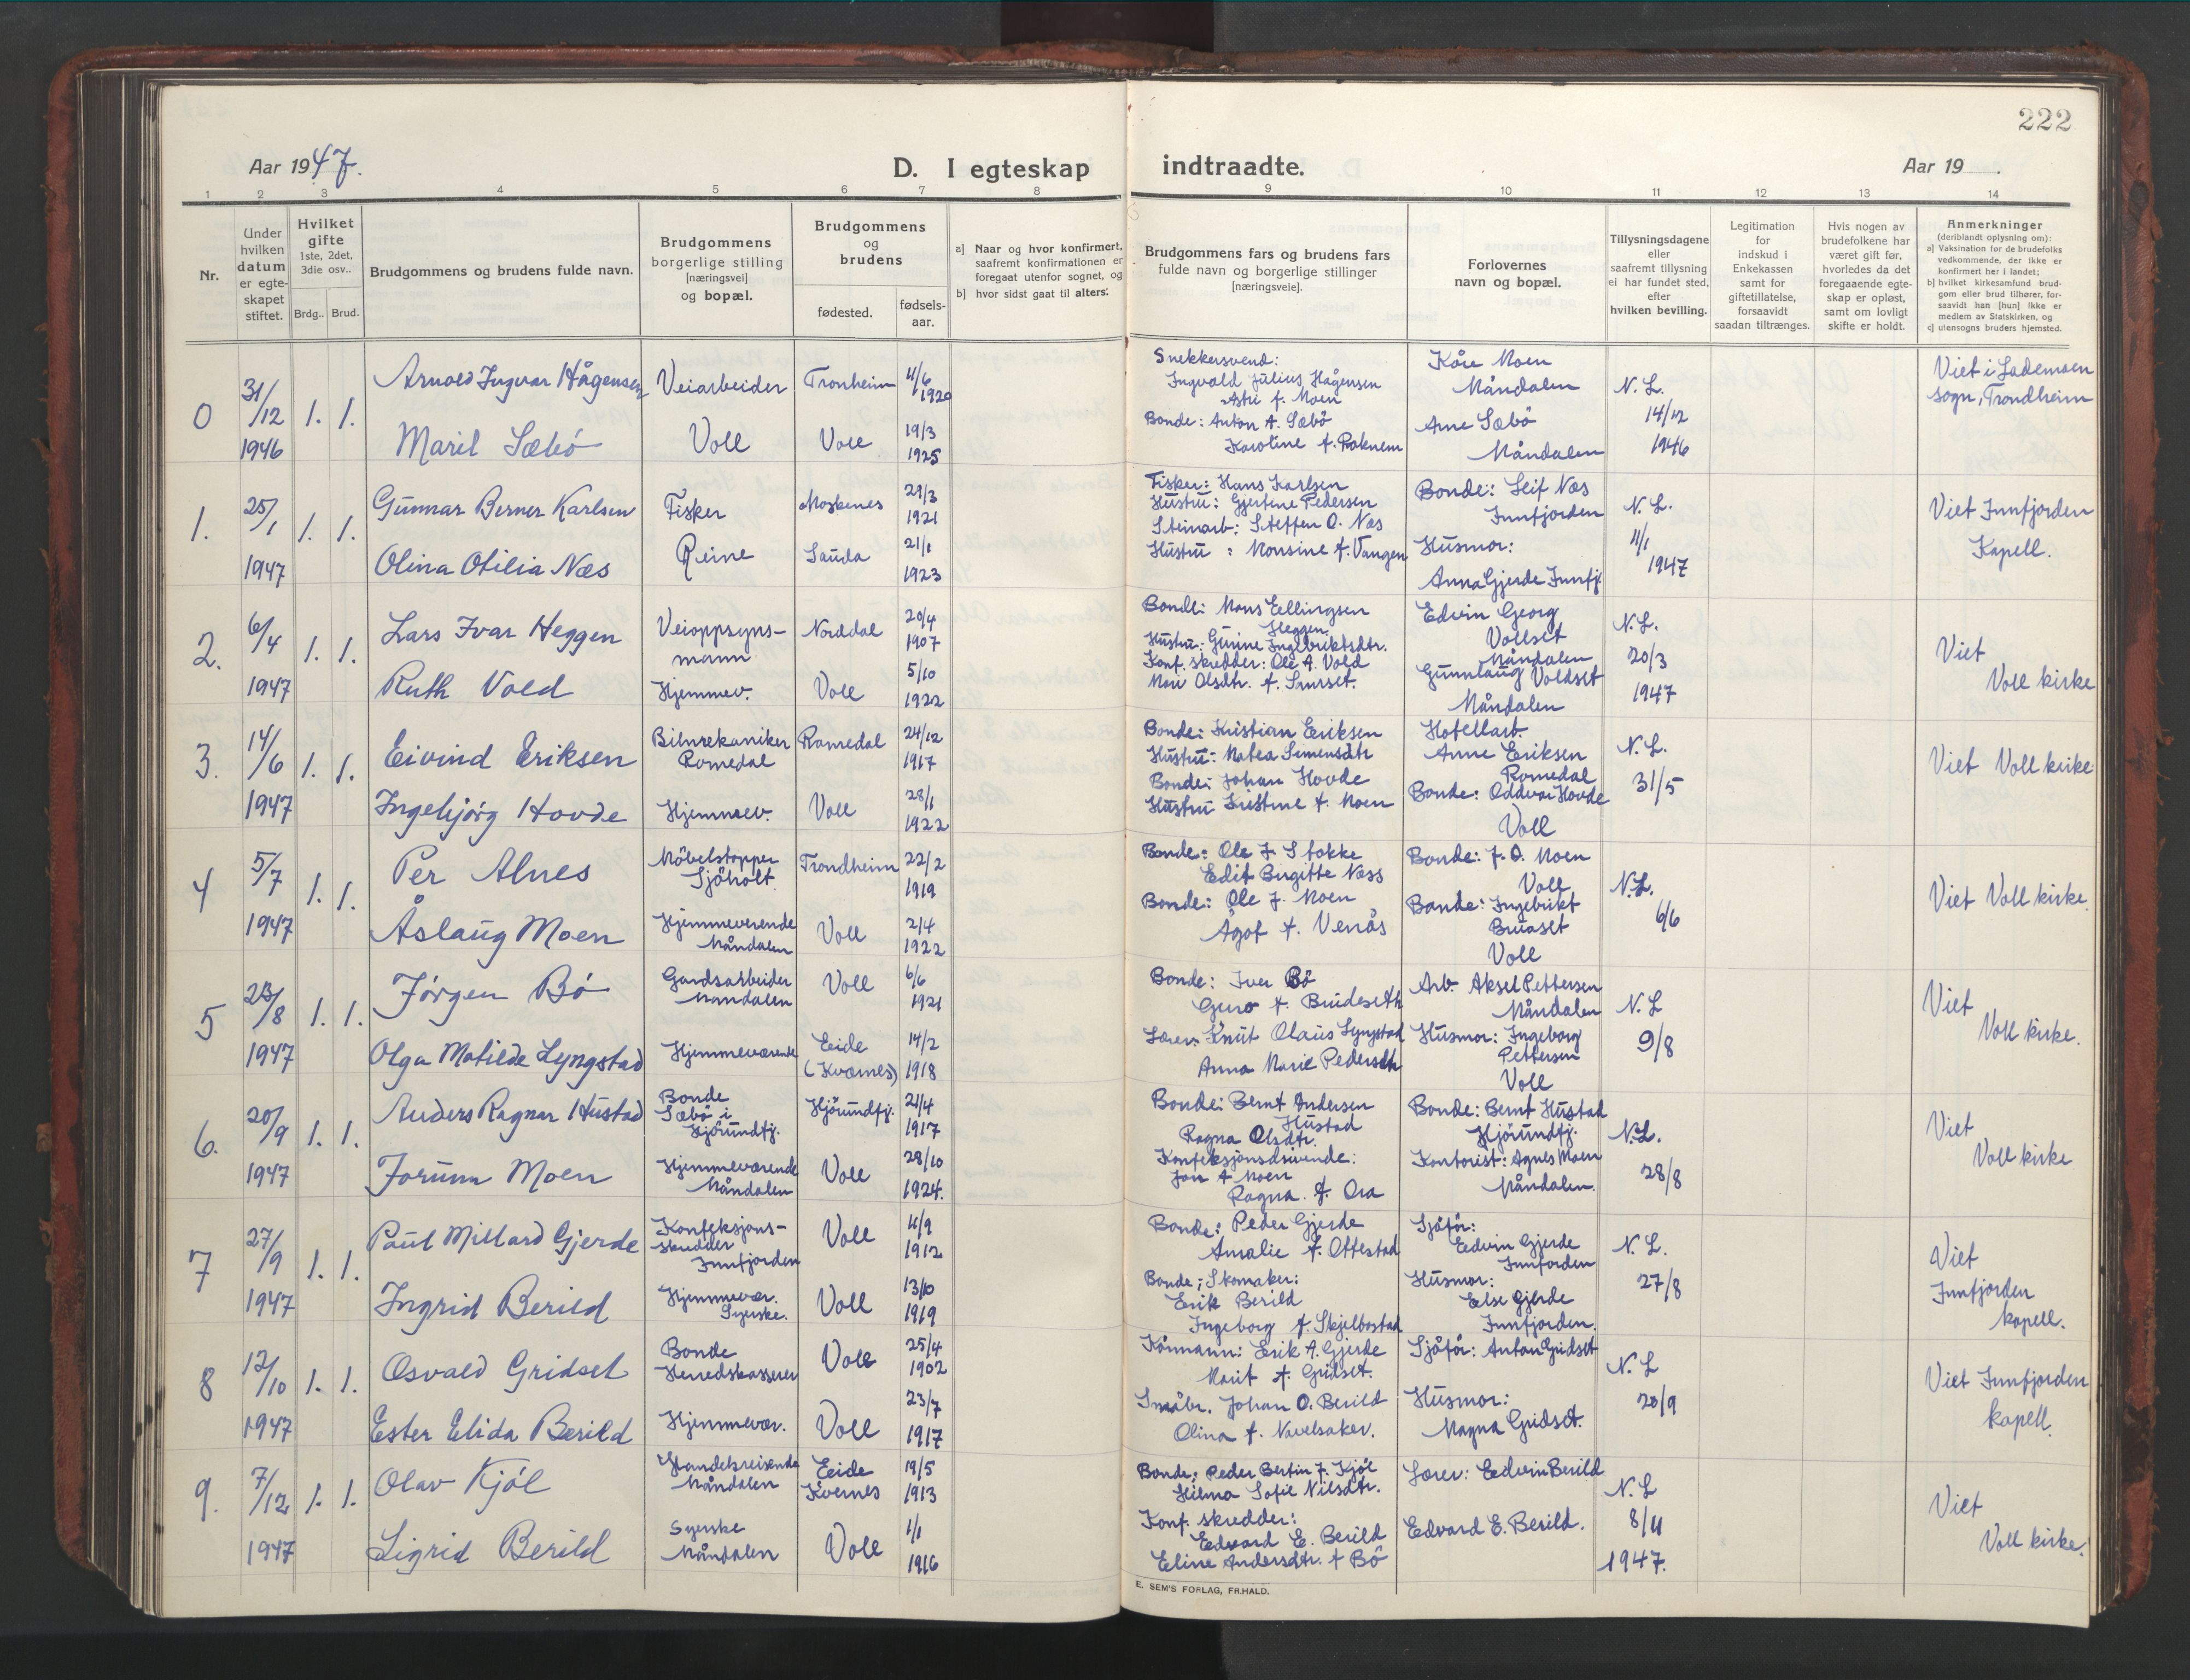 222
Aar 1947.
D. I egteskap indtraadte.
Aar 19 .
1 2 3 4 5 6 7 8 9 10 11 12 13 14
Nr.
Under
hvilken
datum
er egte-
skapet
stiftet.
Hvilket
gifte
1ste, 2det,
3die osv..
Brdg.. Brud.
Brudgommens og brudens fulde navn.
Brudgommens
borgerlige stilling
[næringsvei]
og bopæl.
Brudgommens
og
brudens
fødested.
fødsels-
aar.
a] Naar og hvor konfirmert,
saafremt konfirmationen er
foregaat utenfor sognet, og
b] hvor sidst gaat til alters.
Brudgommens fars og brudens fars
fulde navn og borgerlige stillinger
[næringsveie].
Forlovernes
navn og bopæl.
Tillysningsdagene
eller
saafremt tillysning
ei har fundet sted,
efter
hvilken bevilling.
Legitimation
for
indskud i
Enkekassen
samt for
giftetillatelse,
forsaavidt
saadan tiltrænges.
Hvis nogen av
brudefolkene har
været gift før,
hvorledes da det
foregaaende egte-
skap er opløst,
samt om lovlig
skifte er holdt.
Anmerkninger
(deriblandt oplysning om):
a] Vaksination for de brudefolks
vedkommende, der ikke er
konfirmert her i landet;
b] hvilket kirkesamfund brud-
gom eller brud tilhører, for-
saavidt han [hun] ikke er
medlem av Statskirken, og
c] utensogns bruders hjemsted.
0
31/12
1946
1. 1.
Arnold Ingvar Hågensen
Marit Sæbö
Veiarbeider
Voll
Tronheim
Voll
11/6
1920
19/3
1925
Snekkersvend:
Ingvald Julius Hågensen
Astri f. Moen
Bonde: Anton A. Sæbö
Karoline f. Roknem
Kåre Moen
Måndalen
Arne Sæbö
Måndalen
N. L.
14/12
1946
Viet i Lademoen
sogn, Trondheim
1.
25/1
1947
1. 1.
Gunnar Berner Karlsen
Olina Otilia Næs
Fisker
Reine
Moskenes
Sauda
29/3
1921
21/1
1923
Fisker: Hans Karlsen
Hustru: Gjertine Pedersen
Steinarb: Steffen O. Næs
Hustru: Monsine f. Vangen
Bonde: Leif Næs
Innfjorden
Husmor:
Anna Gjerde Innfj.
N. L.
11/1
1947
Viet Innfjorden
Kapell.
2.
6/4
1947
1. 1.
Lars Ivar Heggen
Ruth Vold
Veioppsyns-
mann
Hjemmev.
Norddal
Voll
20/4
1907
5/10
1922
Bonde: Mons Eellingsen
Heggen.
Hustru: Gurine Ingebriktsdtr.
Konf. skredder: Ole A. Vold
Mari Olsdtr. f. Saurset.
Edvin Georg
Vollset
Måndalen
Gunnlaug Voldset
Måndalen
N. L.
20/3
1947
Viet
Voll kirke
3.
14/6
1947
1. 1.
Eivind Eriksen
Ingebjörg Hovde
Bilmekaniker
Romedal
Hjemmev.
Romedal
Voll
24/12
1917
28/1
1922
Bonde: Kristian Eriksen
Hustru: Matea Simensdtr
Bonde: Johan Hovde
Hustru Kristine f. Moen
Hotellarb.
Anne Eriksen
Romedal
Bonde: Oddvar Hovde
Voll
N. L.
31/5
Viet Voll kirke
4
5/7
1947
1. 1.
Per Alnes
Åslaug Moen
Möbelstopper
Sjöholt.
Hjemmeverende
Måndalen
Trondheim
Voll
22/2
1919
2/4
1922
Bonde: Ole J. Stokke
Edit Birgitte Næss
Bonde: Ole J. Moen
Ågot f. Venås
Bonde: J. O. Moen
Voll
Bonde: Ingebrikt
Bruaset
Voll
N. L.
6/6
Viet Voll kirke.
5
23/8
1947
1. 1.
Jörgen Bö
Olga Matilde Lyngstad
Gardsarbeider
Måndalen
Hjemmeværende
Voll
Eide
(Kværnes)
6/6
1921
14/2
1918
Bonde: Iver Bö
Guro f. Brudeseth
Lærer Knut Olaus Lyngstad
Anna Marie Pedersdtr
Arb. Aksel Pettersen
Måndalen
Husmor: Ingeborg
Pettersen
Voll
N. L
9/8
Viet
Voll kirke.
6.
20/9
1947
1. 1.
Anders Ragnar Hustad
Jorunn Moen
Bonde
Sæbö i
Hjörundfj.
Hjemmeværende
Måndalen
Hjörundfj.
Voll
21/4
1917
28/10
1924.
Bonde: Bernt Andersen
Hustad
Ragna Olsdtr.
Konfeksjonsdrivende:
Jon A Moen
Ragna f. Ora
Bonde: Bernt Hustad
Hjörundfj.
Kontorist: Agnes Moen
Måndalen.
N. L.
28/8
Viet
Voll kirke
7
27/9
1947
1. 1.
Paul Millard Gjerde
Ingrid Berild
Konfeksjons-
skredder
Innfjorden
Hjemmevær.
Syerske.
Voll
Voll
11/9
1912
13/10
1919
Bonde: Peder Gjerde
Amalie f. Ottestad
Bonde; Skomaker:
Erik Berild
Ingeborg f. Skjelbostad
Sjåför:
Eedvin Gjerde
Innforden
Husmor:
Else Gjerde
Innfjorden.
N. L.
27/8
Viet
Innfjorden
kapell.
8
12/10
1947
1. 1.
Osvald Gridset
Ester Elida Berild
Bonde
Herredskasserer
Hjemmevær.
Voll
Voll
25/4
1902
23/7
1917
Kårmann: Erik A. Gjerde
Marit f. Gridset.
Småbr. Johan O. Berild
Olina f. Navelsaker.
Sjåför: Anton Gridset
Husmor:
Magna Gridset.
N. L
20/9
Viet Innfjorden
kapell.
9.
7/12
1947
1. 1.
Olav Kjöl
Sigrid Berild
Handelsreisende
Måndalen
Syerske
Måndalen
Eide
Kvernes
Voll
19/5
1913
1/1
1916
Bonde: Peder Bertin J. Kjöl
Hilma Sofie Nilsdtr.
Konf. skredder:
Eedvard E. Berild
Eline Andersdtr. f Bö
Lærer: Eedvin Berild
Edvard E. Berild.
N. L
8/11
1947.
Viet
Voll kirke.
E. SEM'S FORLAG, FR.HALD.